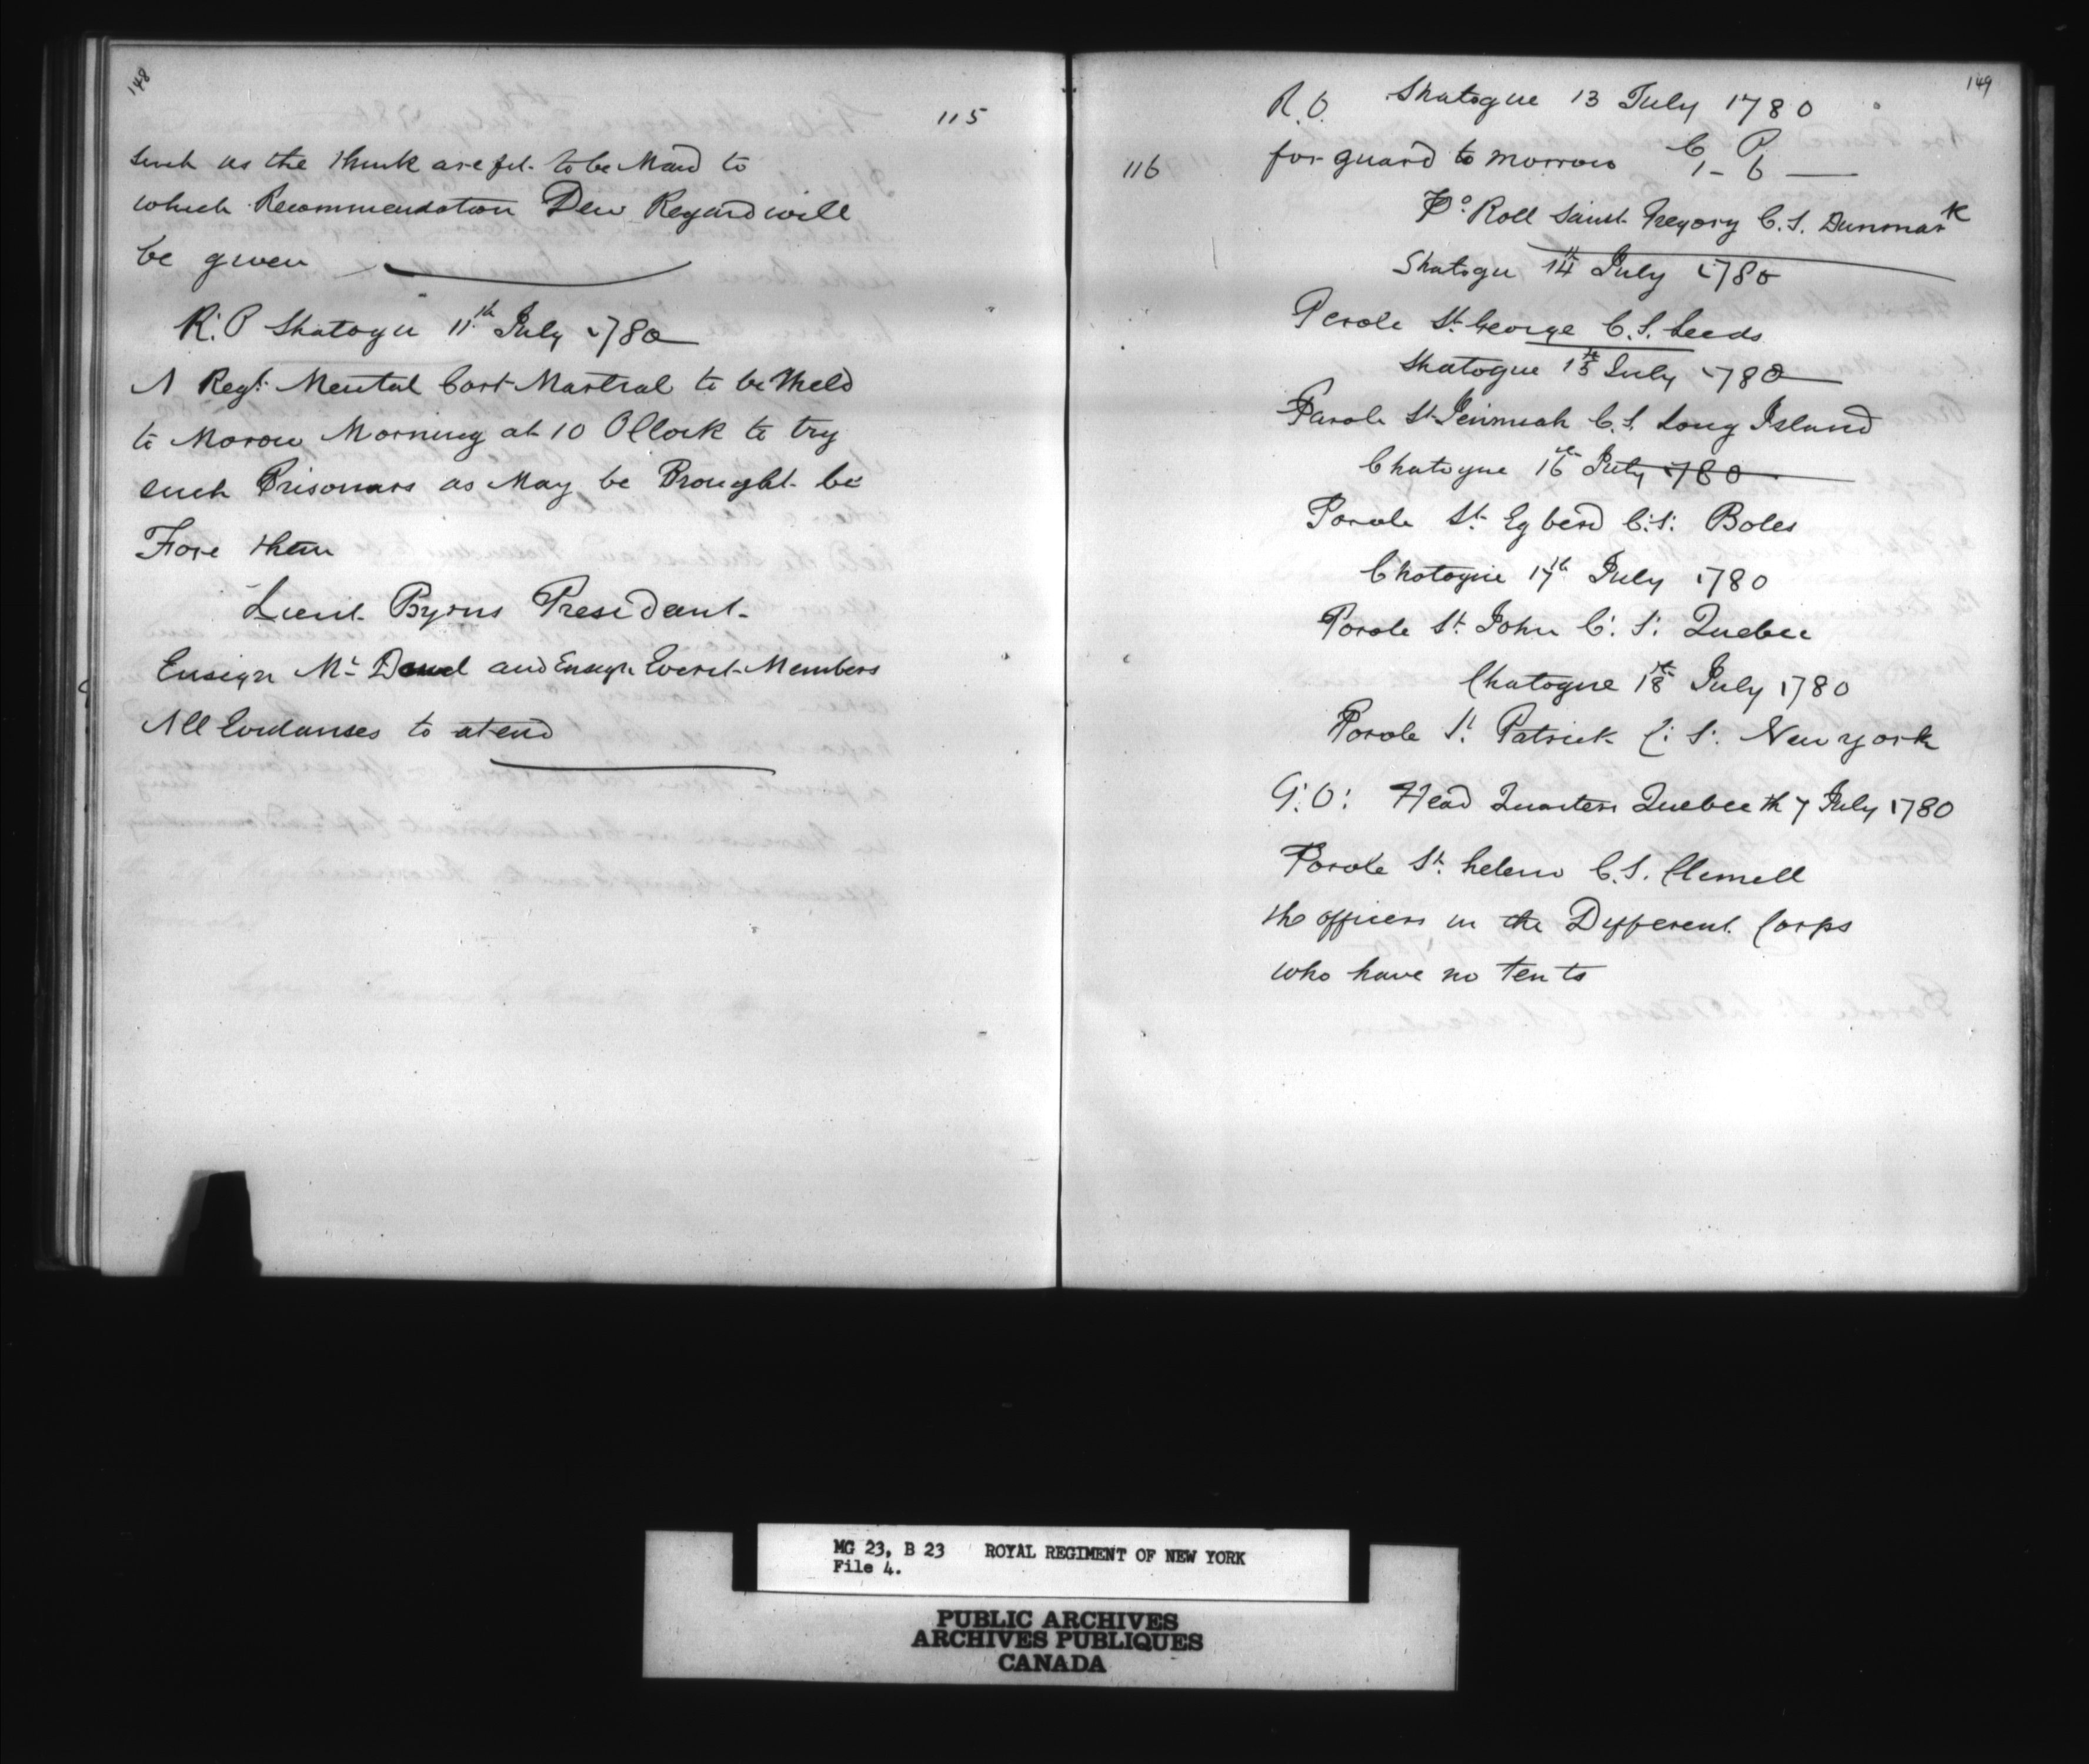 148
115
Such as the think are fit to be Maid to
which Recommendation Dew Regard will
be given
R. P Shatogu 11th July 1780
A Regt Mental Cort Martial to be Theld
to Morow Morning at 10 OClock to try
such Prisonars as May be Brought be
Fore them
Lieut Byrns President
Ensign Mc and Ensign Everet Members
All Evidanses to atend
149
R. O. Shatogue 13 July 1780
116
for guard to morrow C 1 - P 6
Po Roll Saint Gregory C. S. Dunmark
Shatogu 14th July 1780
Perole St George C. S. Leeds
Shatogue 15th July 1780
Parole St Jeirmiah C. S. Long Island
Chatogue 16th July 1780
Parole St Egberd C: S: Boles
Chatogue 17th July 1780
Parole St John C. S: Quebec
Chatogue 18th July 1780
Parole St Patrick C: S: New york
G: O: Head Quarters Quebec th 7 July 1780
Parole St helens C. S. Clemell
the officers in the Different Corps
who have no tents
MG 23, B 23 ROYAL REGIMENT OF NEW YORK
File 4.
PUBLIC ARCHIVES
ARCHIVES PUBLIQUES
CANADA